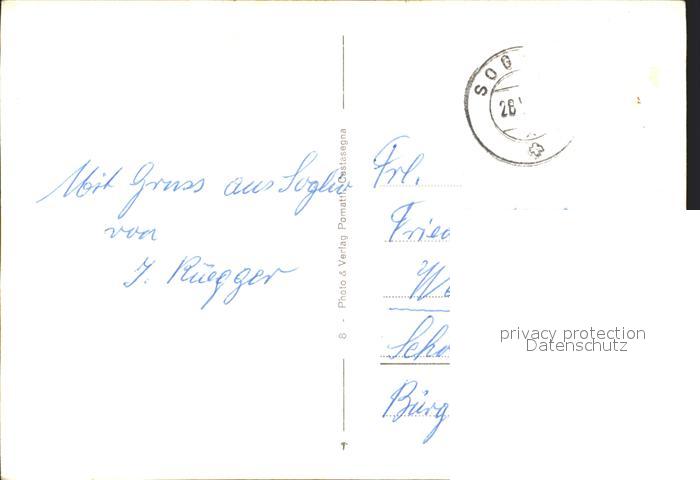 Mit Gruss aus Soglio
von
J. Rüegger
8 - Photo & Verlag Pomatti Castasegna
SOG
28
Frl.
Fried
We
Scho
Bürg
privacy protection
Datenschutz